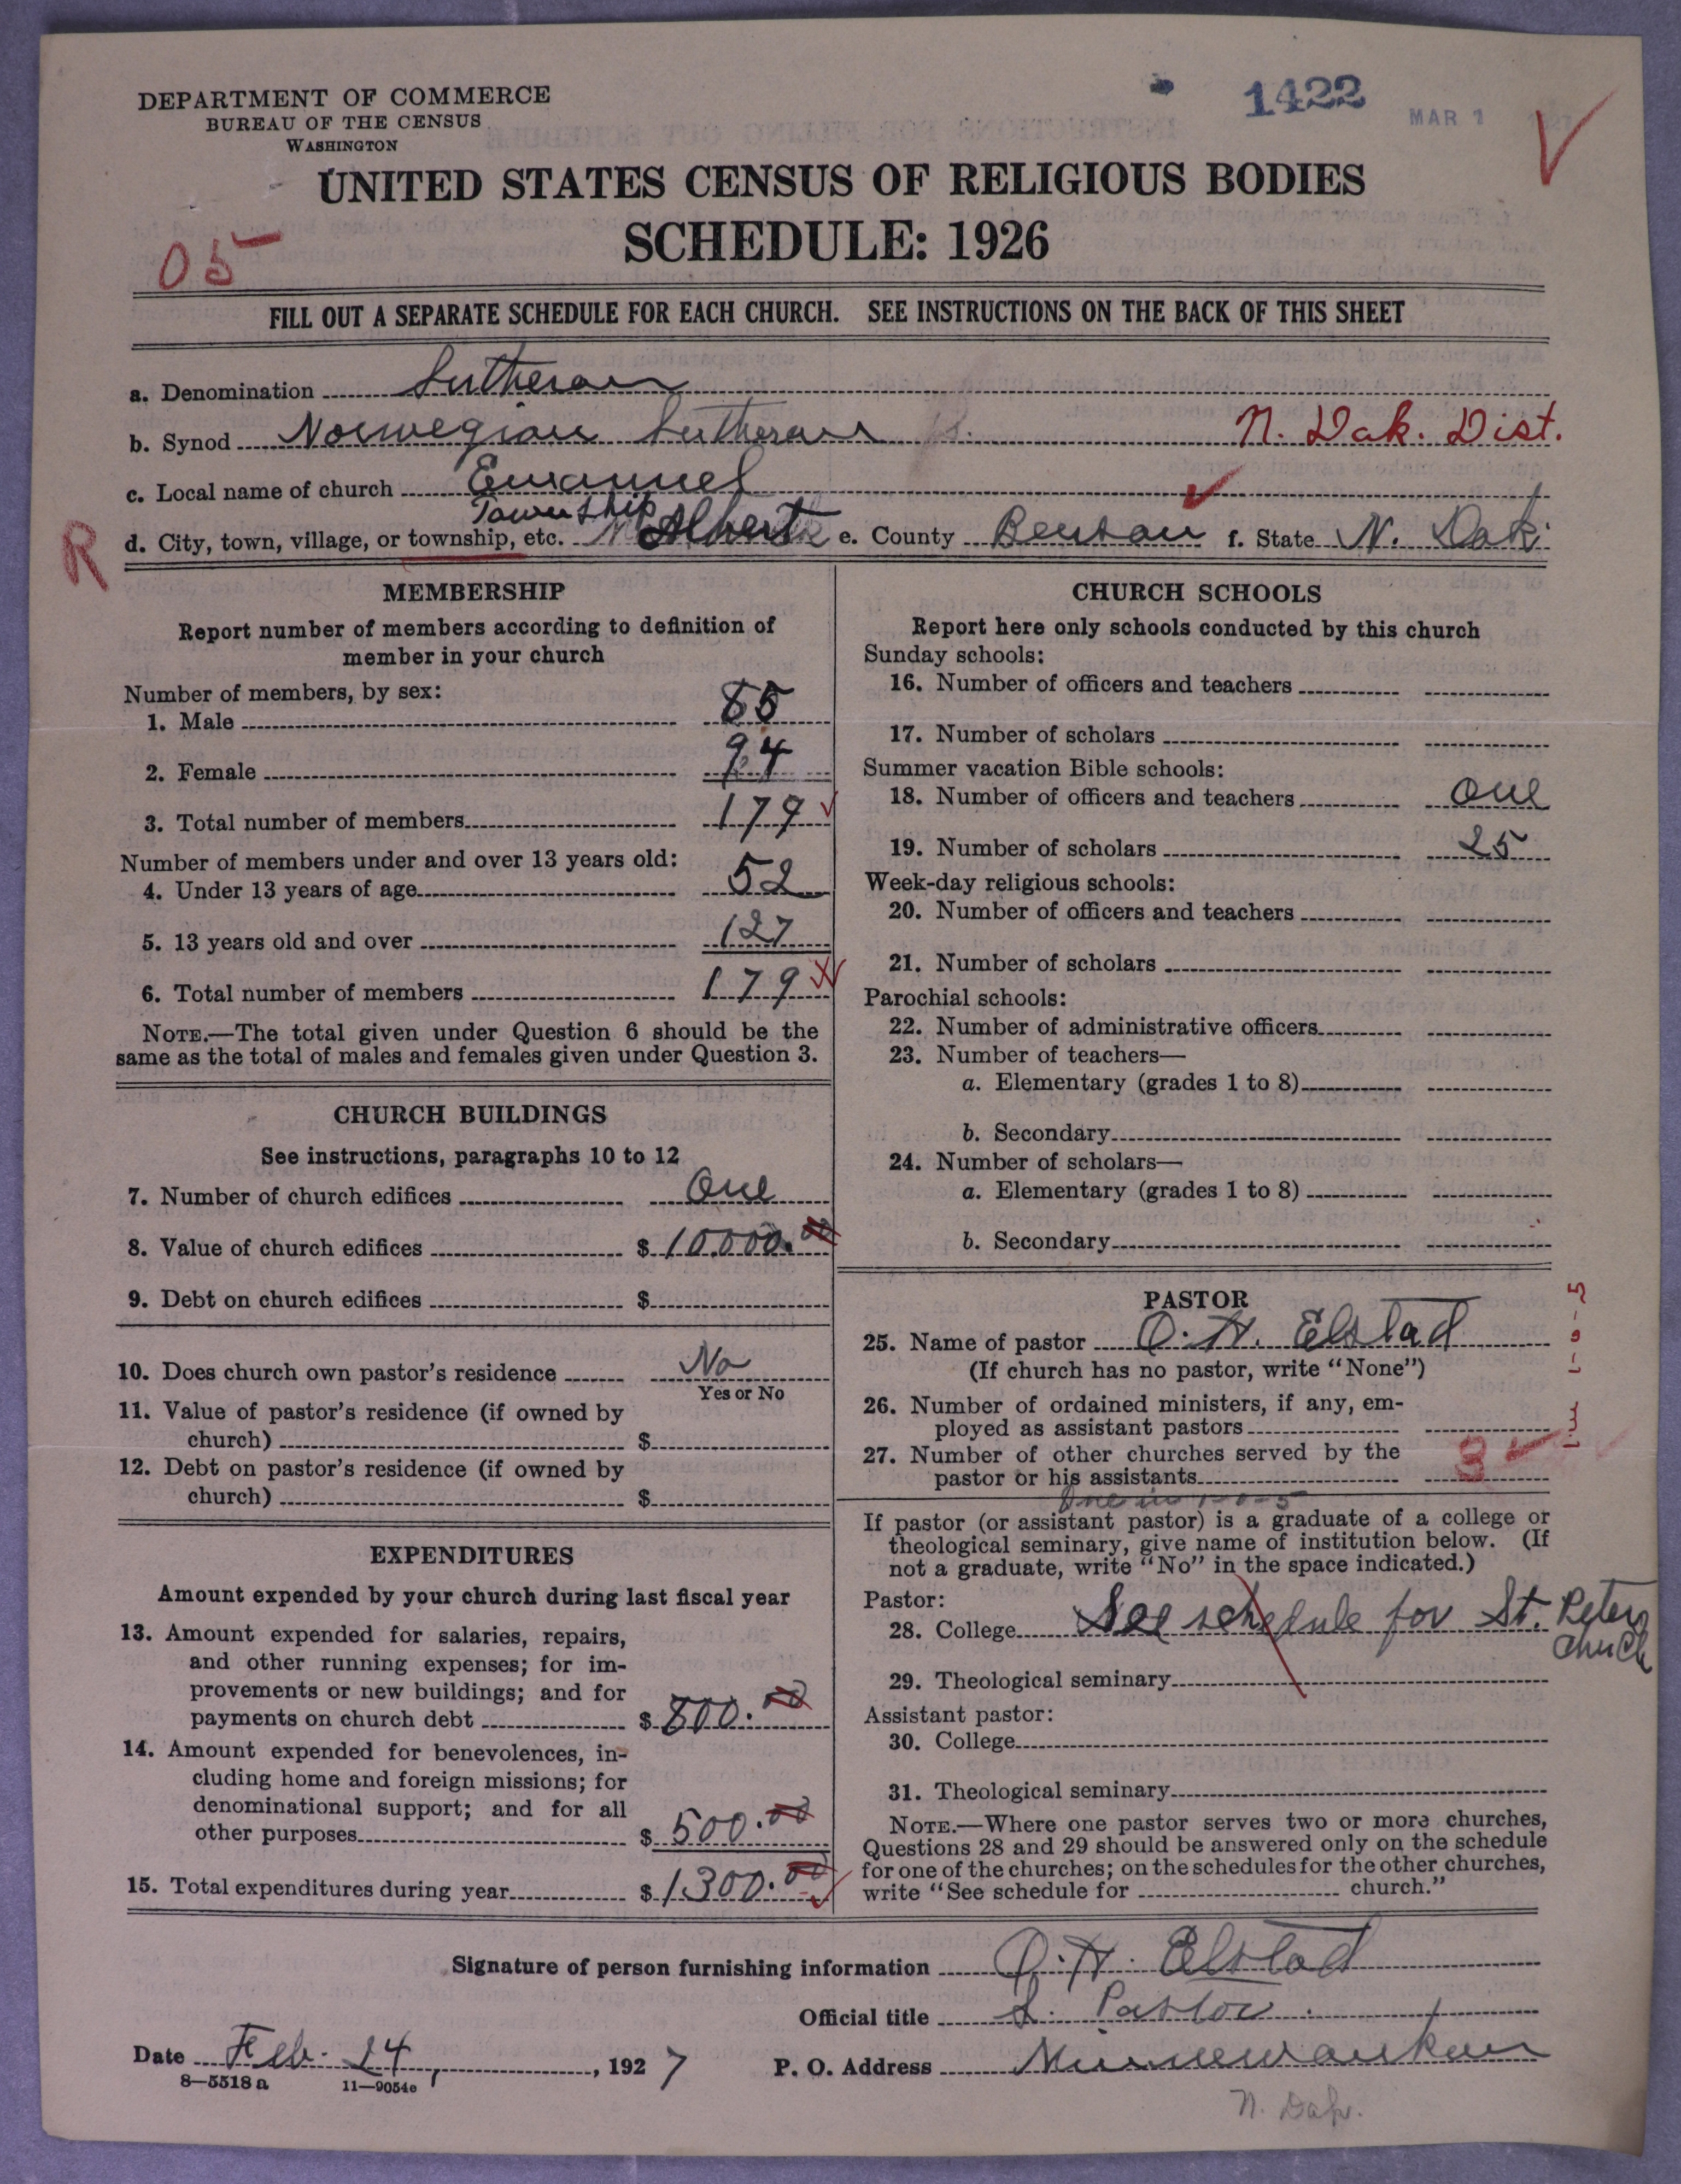 1422
MAR 1
DEPARTMENT OF COMMERCE
BUREAU OF THE CENSUS
WASHINGTON
UNITED STATES CENSUS OF RELIGIOUS BODIES
SCHEDULE: 1926
05
FILL OUT A SEPARATE SCHEDULE FOR EACH CHURCH. SEE INSTRUCTIONS ON THE BACK OF THIS SHEET
a. Denomination Lutheran
b. Synod Norwegian Lutheran N. Dak. Dist.
c. Local name of church Emanuel
Township
R d. City, town, village, or township, etc. Albert e. County Benson f. State N. Dak.
MEMBERSHIP
Report number of members according to definition of
member in your church
Number of members, by sex:
1. Male 85
2. Female 94
3. Total number of members 179
Number of members under and over 13 years old:
4. Under 13 years of age 52
5. 13 years old and over 127
6. Total number of members 179
NOTE.—The total given under Question 6 should be the
same as the total of males and females given under Question 3.
CHURCH BUILDINGS
See instructions, paragraphs 10 to 12
7. Number of church edifices One
8. Value of church edifices $ 10,000.00
9. Debt on church edifices $
10. Does church own pastor's residence No
Yes or No
11. Value of pastor's residence (if owned by
church) $
12. Debt on pastor's residence (if owned by
church) $
EXPENDITURES
Amount expended by your church during last fiscal year
13. Amount expended for salaries, repairs,
and other running expenses; for im-
provements or new buildings; and for
payments on church debt $ 800.00
14. Amount expended for benevolences, in-
cluding home and foreign missions; for
denominational support; and for all
other purposes $ 500.00
15. Total expenditures during year $ 1300.00
CHURCH SCHOOLS
Report here only schools conducted by this church
Sunday schools:
16. Number of officers and teachers
17. Number of scholars
Summer vacation Bible schools:
18. Number of officers and teachers One
19. Number of scholars 25
Week-day religious schools:
20. Number of officers and teachers
21. Number of scholars
Parochial schools:
22. Number of administrative officers
23. Number of teachers—
a. Elementary (grades 1 to 8)
b. Secondary
24. Number of scholars—
a. Elementary (grades 1 to 8)
b. Secondary
PASTOR
25. Name of pastor O. H. Elstad
(If church has no pastor, write "None")
26. Number of ordained ministers, if any, em-
ployed as assistant pastors
27. Number of other churches served by the
pastor or his assistants 3
One in 1-0-5
If pastor (or assistant pastor) is a graduate of a college or
theological seminary, give name of institution below. (If
not a graduate, write "No" in the space indicated.)
Pastor:
28. College See schedule for St. Peters
church
29. Theological seminary
Assistant pastor:
30. College
31. Theological seminary
NOTE.—Where one pastor serves two or more churches,
Questions 28 and 29 should be answered only on the schedule
for one of the churches; on the schedules for the other churches,
write "See schedule for church."
1-0-5
Signature of person furnishing information O. H. Elstad
Official title L. Pastor
Date Feb. 24, 1927 P. O. Address Minnewaukan
N. Dak.
8—5518 a 11—9054e